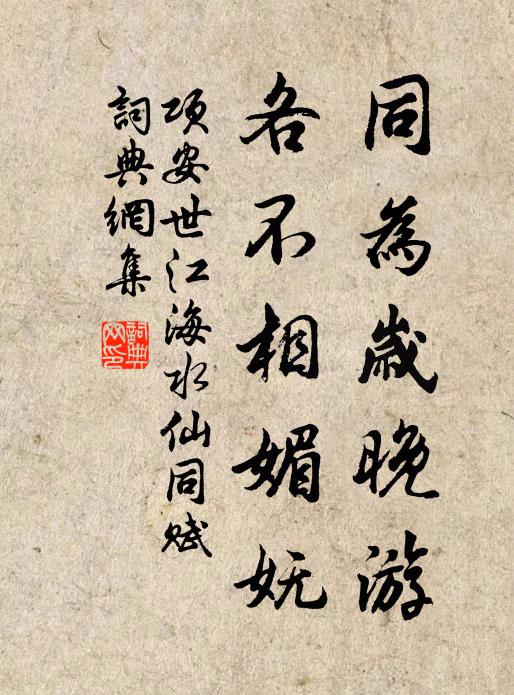 同為歲晚游
各不相媚妩
項安世江海水仙同赋
詞典網集
詞典网印